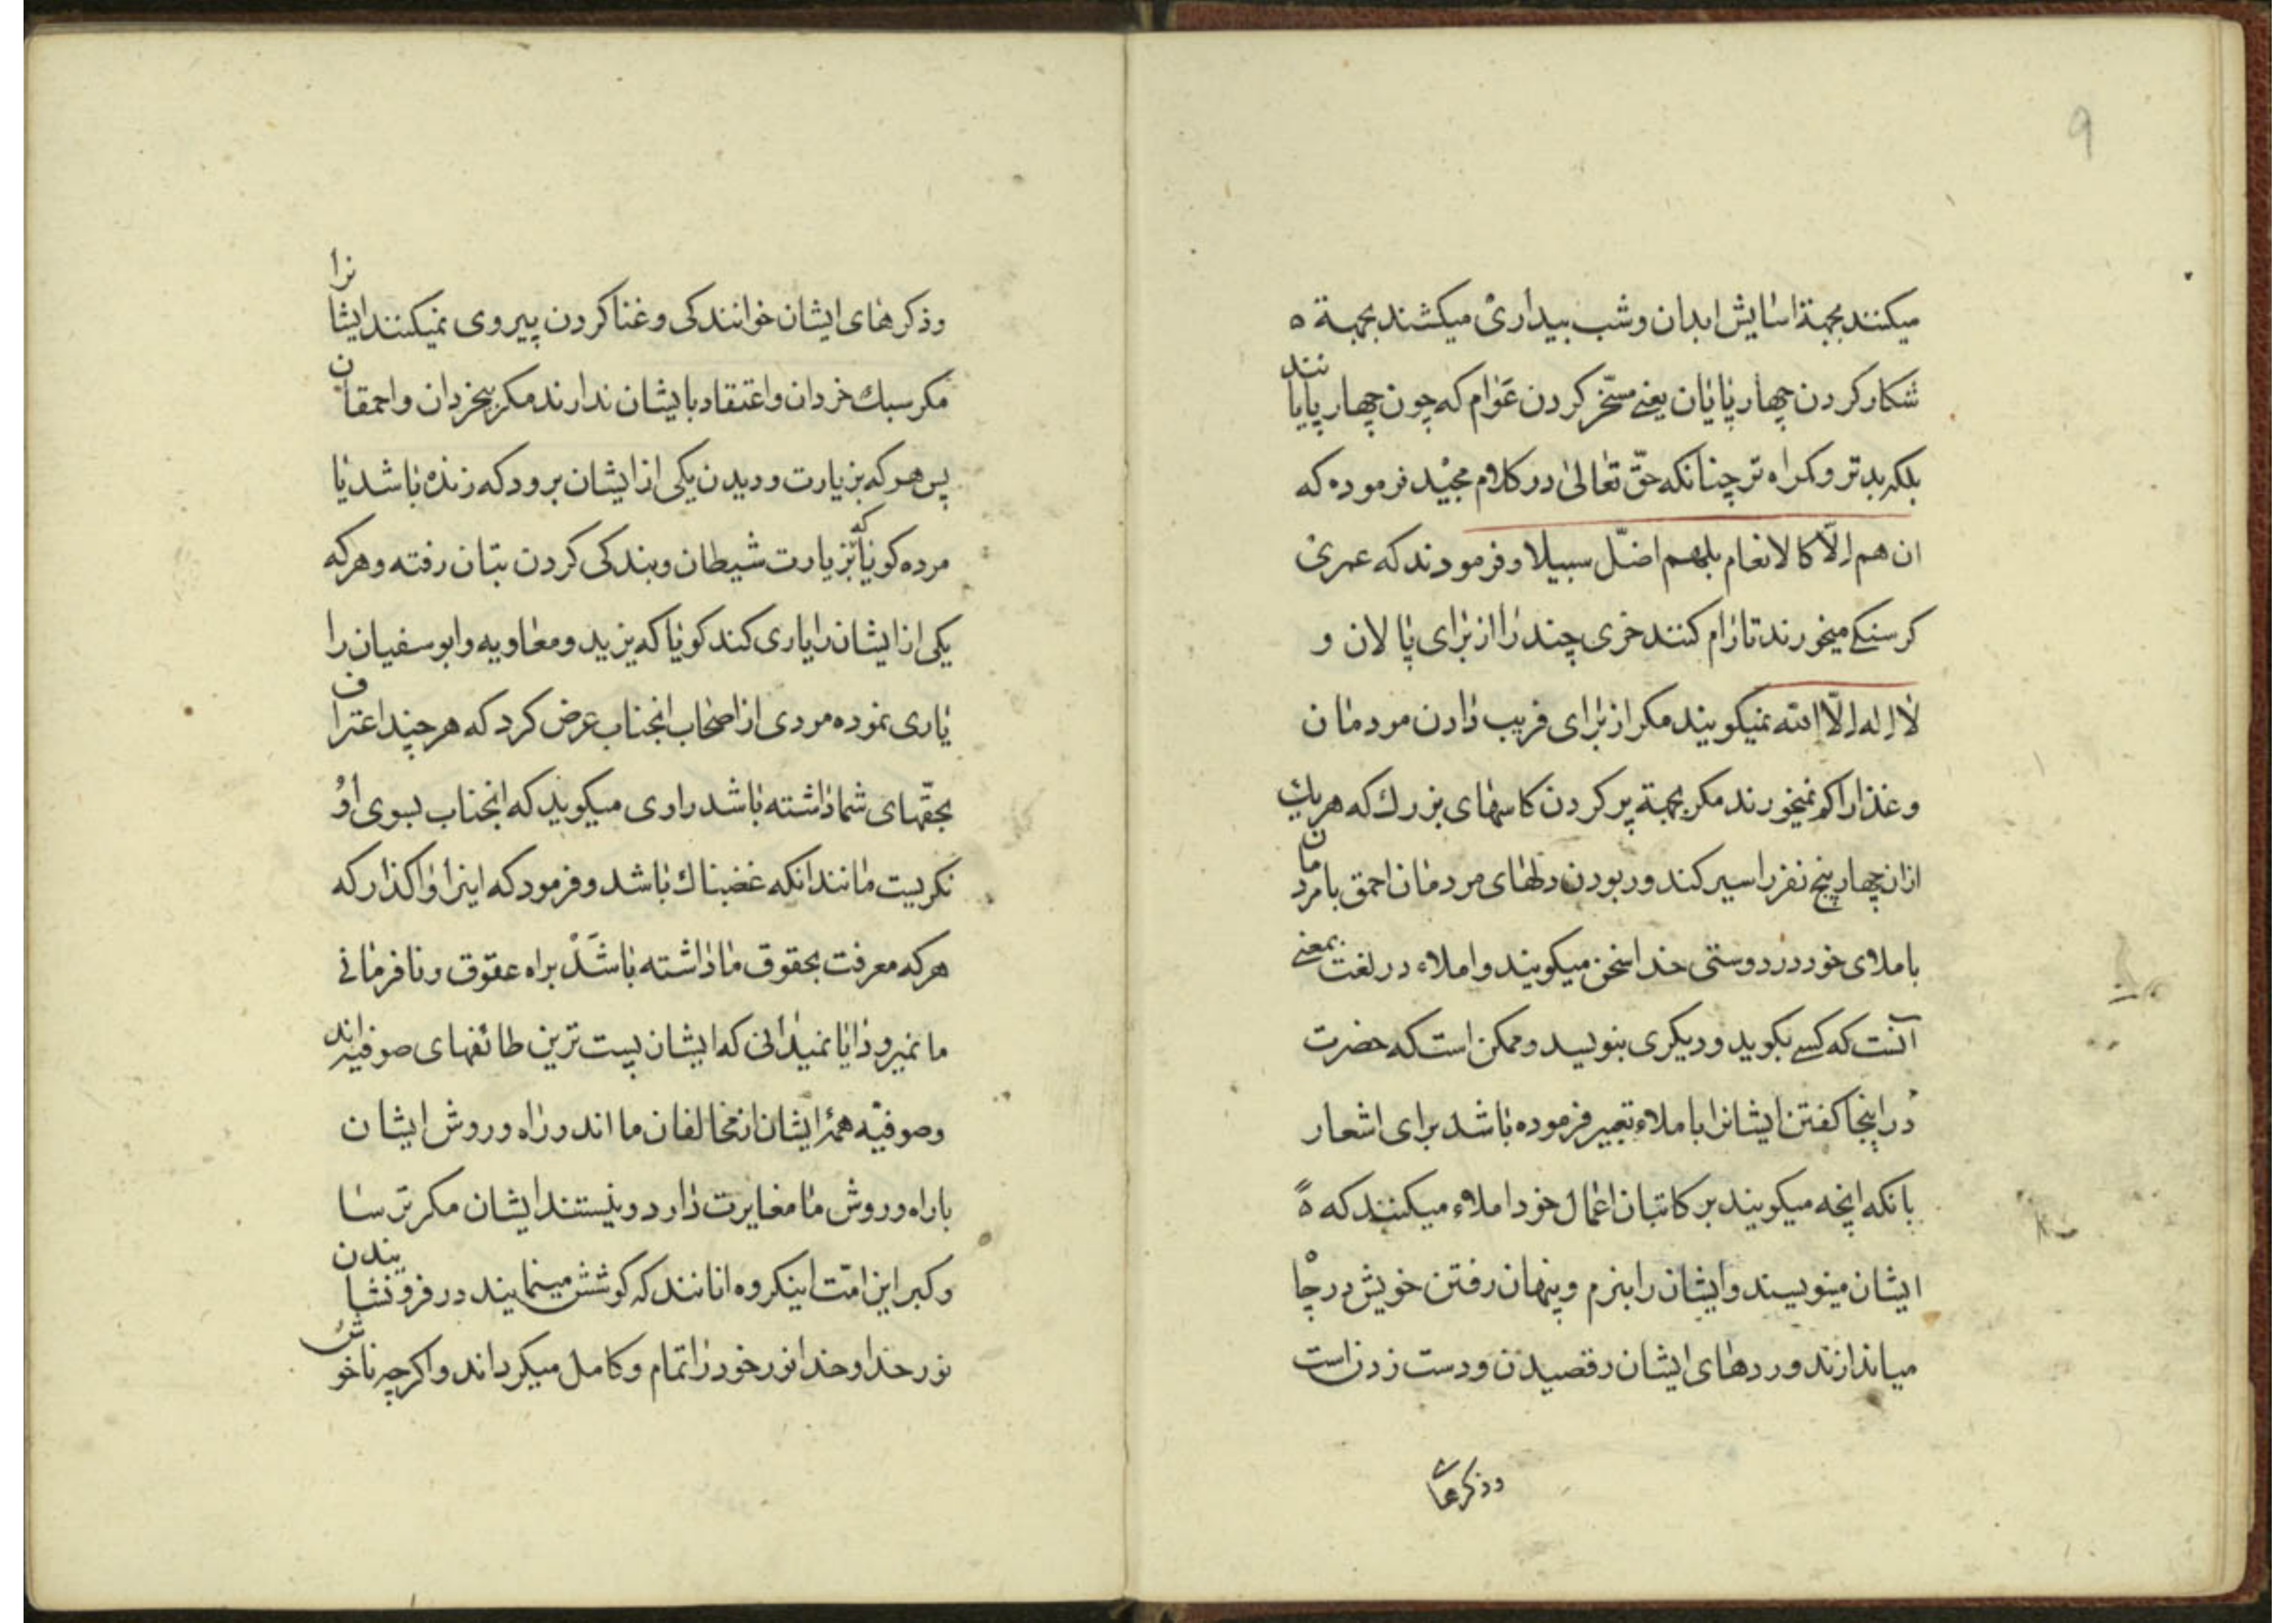 ۹
میکنند بجهة اسایش ابدان و شب بیداری میکشند بجهة ه
شکار کردن چهارپایان یعنی مسخّر کردن عَوام که چون چهارپایانند
بلکه بدتر و کمراه تر چنانکه حقّ تعالیٰ در کلام مجید فرموده که
ان هم الّا کالانعام بلهم اضلّ سبیلا و فرمودند که عمری
کرسنکی میخورند تا رام کنند خری چند را از برای پالان و
لا اله الّا الله نمیکویند مکر از برای فریب دادن مردمان
و غذا را کم نمیخورند مکر بجهة پر کردن کاسهای بزرك که هریك
از ان چهار پنج نفر را سیر کند و ربودن دلهای مردمان احمق با مردمان
باملای خود در دوستی خدا سخن میکویند و املاء در لغت بمعنی
آنست که کسی بکوید و دیکری بنویسد و ممکن است که حضرت
در اینجا کفتن ایشانرا باملاء تعبیر فرموده باشد برای اشعار
بانکه انچه میکویند بر کاتبان اعمال خود املاء میکنند که ه
ایشان مینویسند و ایشان را بنرم و پنهان رفتن خویش در چاه
میاندازند و وردهای ایشان رقصیدن و دست زدن است
و ذکرهای
و ذکرهای ایشان خوانندکی و غنا کردن پیروی نمیکنند ایشانرا
مکر سبك خردان و اعتقاد بایشان ندارند مکر بیخردان و احمقان
پس هر که بزیارت و دیدن یکی از ایشان برود که زنده باشد یا
مرده کویا که بزیارت شیطان و بندکی کردن بتان رفته و هر که
یکی از ایشان را یاری کند کویا که یزید و معاویه و ابو سفیان را
یاری نموده مردی از اصحاب انجناب عرض کرد که هر چند اعتراف
بحقّهای شما داشته باشد راوی میکوید که انجناب بسوی اوُ
نکریست مانند انکه غضبناك باشد و فرمود که اینرا واکذار که
هر که معرفت بحقوق ما داشته باشَدْ براه عقوق و نافرمانی
ما نمیرود ایا نمیدانی که ایشان پست ترین طائفهای صوفیه اند
و صوفیّه همهٔ ایشان از مخالفان ما اند و راه و روش ایشان
با راه و روش ما مغایرت دارد و نیستند ایشان مکر ترسا
و کبر این امّت اینکروه انانند که کوشش مینمایند در فرونشایندن
نور خدا و خدا نور خود را تمام و کامل میکرداند و اکرچه ناخوش